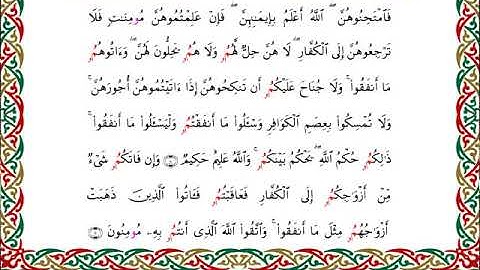 فَٱمْتَحِنُوهُنَّ ۖ ٱللَّهُ أَعْلَمُ بِإِيمَٰنِهِنَّ ۖ فَإِنْ عَلِمْتُمُوهُنَّ مُومِنَٰتٍ فَلَا
تَرْجِعُوهُنَّ إِلَى ٱلْكُفَّارِ ۖ لَا هُنَّ حِلٌّ لَّهُمُۥ وَلَا هُمُۥ يَحِلُّونَ لَهُنَّ ۖ وَءَاتُوهُمُۥ
مَا أَنفَقُوا۟ ۚ وَلَا جُنَاحَ عَلَيْكُمُۥ أَن تَنكِحُوهُنَّ إِذَا ءَاتَيْتُمُوهُنَّ أُجُورَهُنَّ ۚ
وَلَا تُمْسِكُوا۟ بِعِصَمِ ٱلْكَوَافِرِ وَسْـَٔلُوا۟ مَا أَنفَقْتُمُۥ وَلْيَسْـَٔلُوا۟ مَا أَنفَقُوا۟ ۚ
ذَٰلِكُمُۥ حُكْمُ ٱللَّهِ ۖ يَحْكُمُ بَيْنَكُمُۥ ۚ وَٱللَّهُ عَلِيمٌ حَكِيمٌ ۝ وَإِن فَاتَكُمُۥ شَىْءٌ
مِّنْ أَزْوَٰجِكُمُۥ إِلَى ٱلْكُفَّارِ فَعَاقَبْتُمُۥ فَـَٔاتُوا۟ ٱلَّذِينَ ذَهَبَتْ
أَزْوَٰجُهُمُۥ مِثْلَ مَا أَنفَقُوا۟ ۚ وَٱتَّقُوا۟ ٱللَّهَ ٱلَّذِى أَنتُمُۥ بِهِۦ مُومِنُونَ ۝